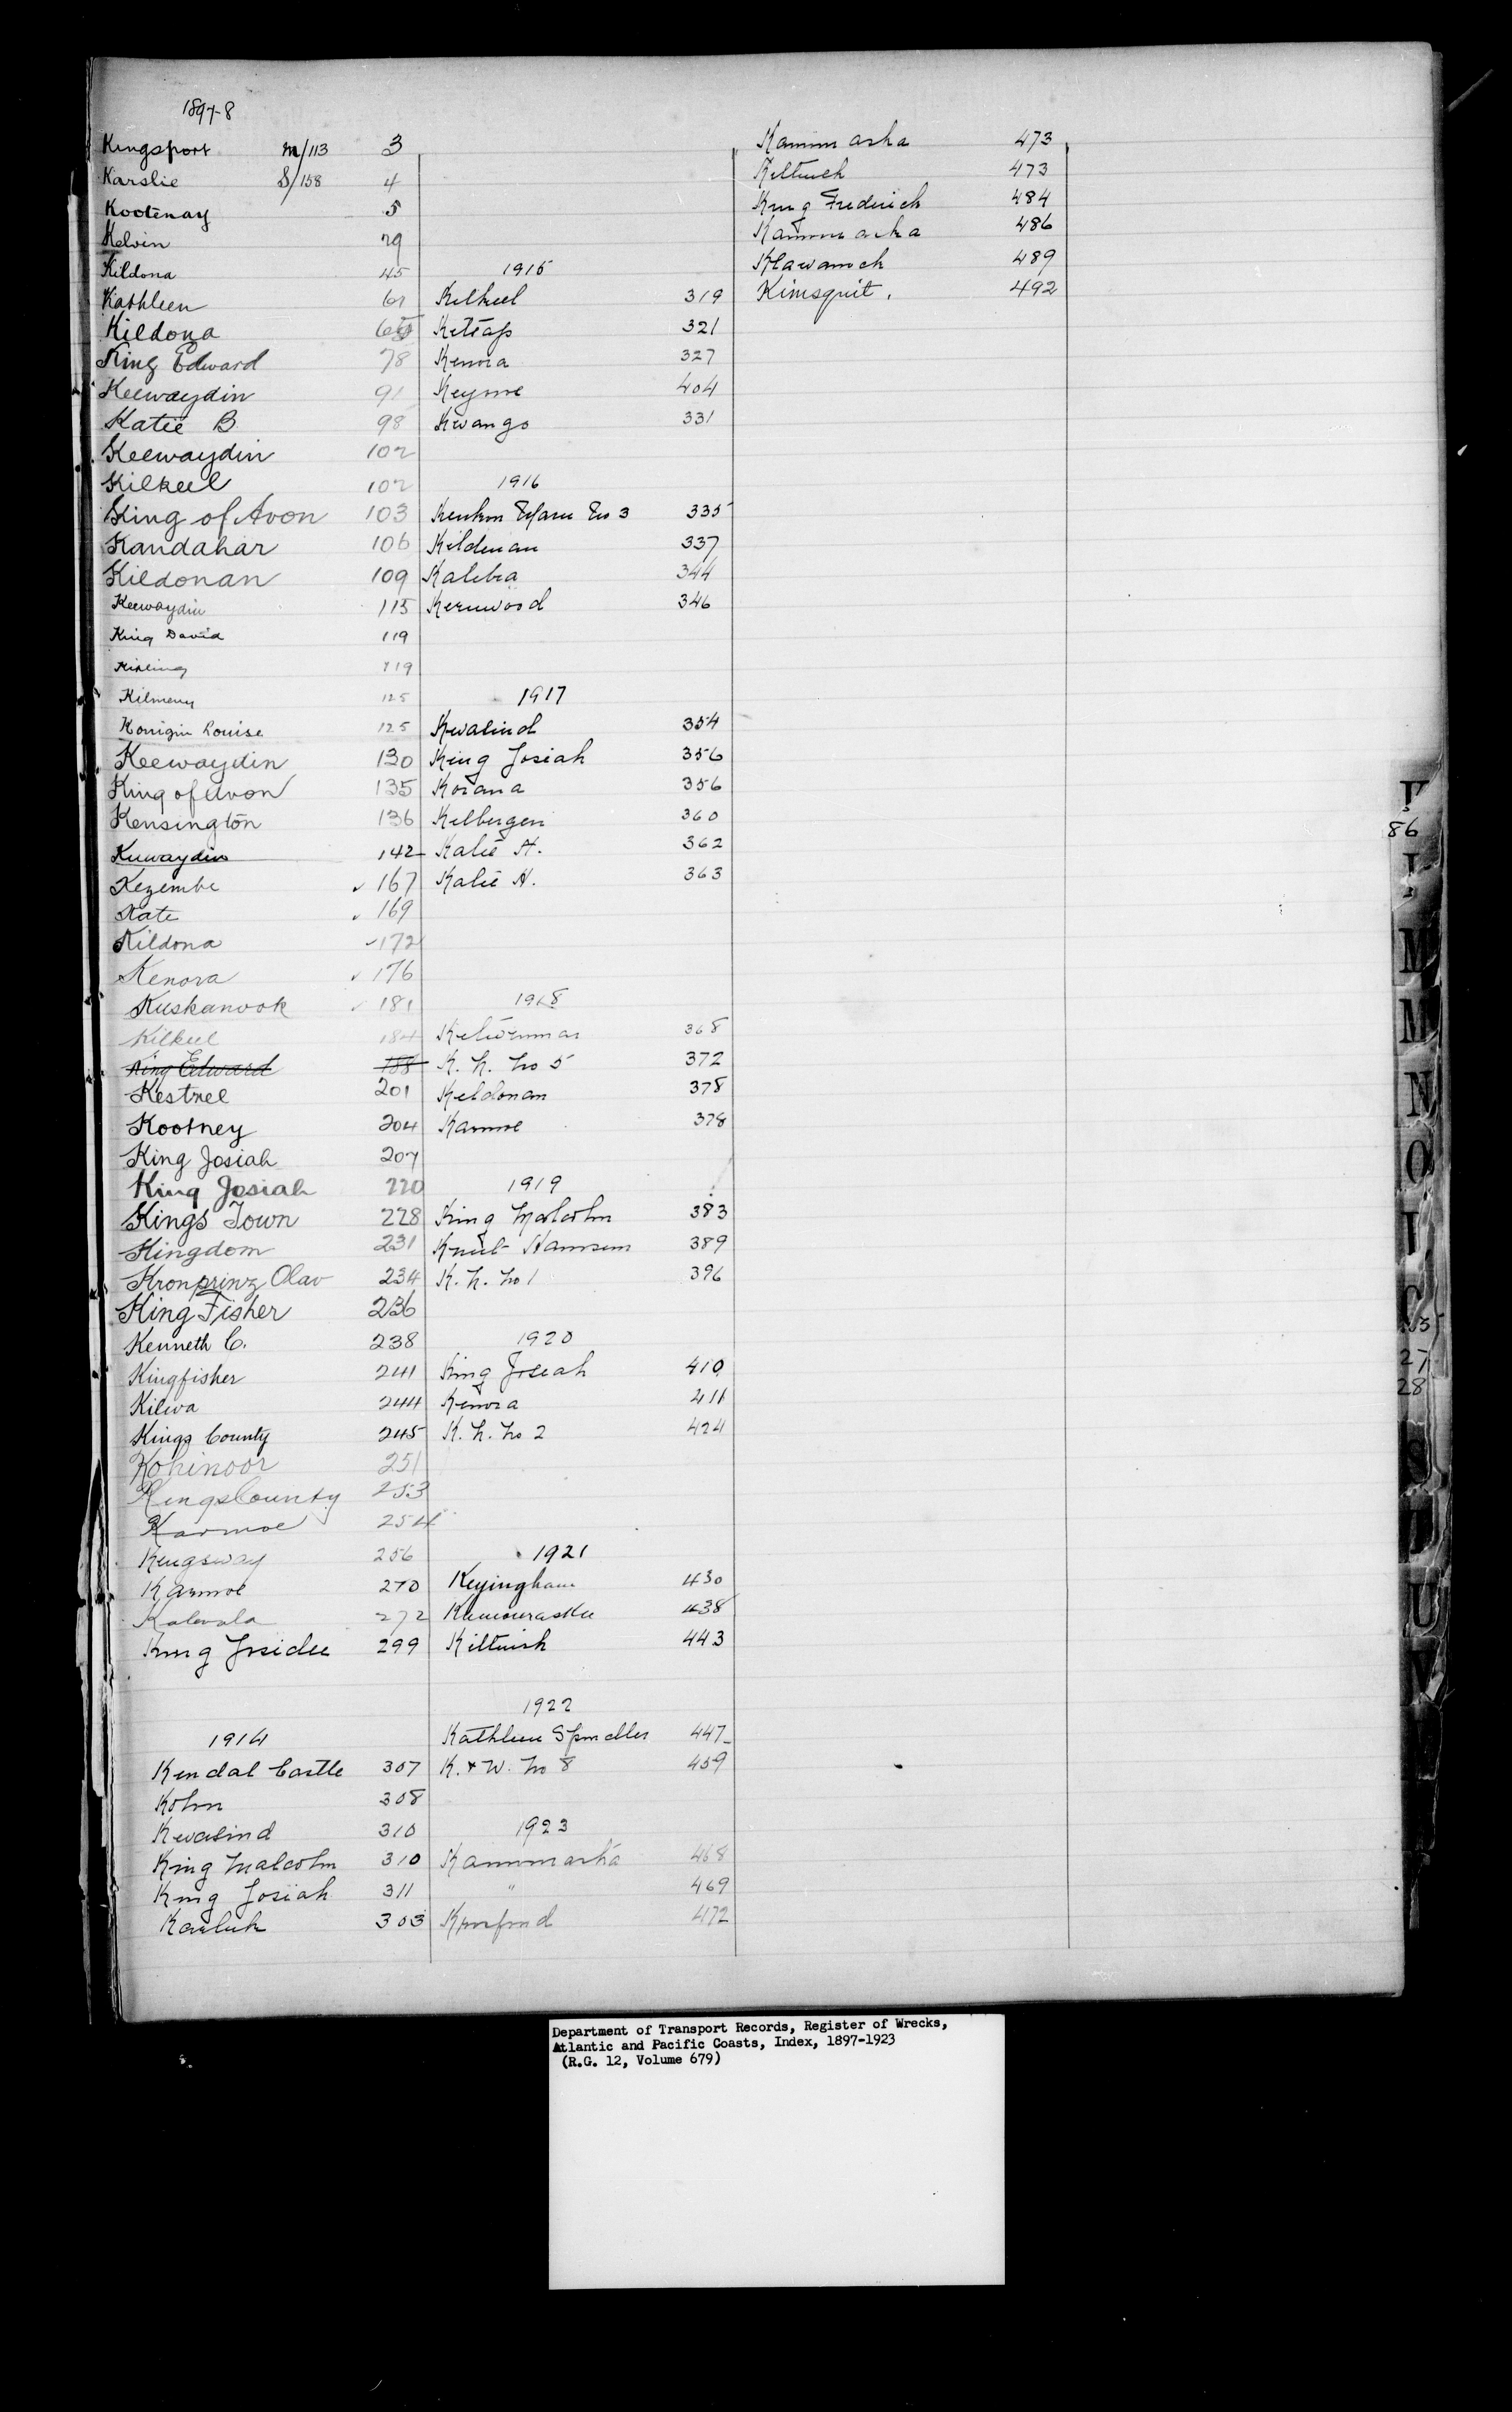 1897-8
Kingsport m/113 3
Karslie S/158 4
Kootenay 5
Kelvin 29
Kildona 45
Kathleen 61
Kildona
King Edward 78
Keewaydin 91
Katie B 98
Keewaydin 102
Kilkeel 102
King of Avon 103
Kandahar 106
Kildonan 109
Keewaydin 115
King David 119
Kipling 119
Kilmeny 125
Konigin Louise 125
Keewaydin 130
King of Avon 135
Kensington 136
Keewaydin 142
Kezembe 167
Kate 169
Kildona 172
Kenora 176
Kuskanook 181
Kilkeel 184
King Edward 188
Kestrel 201
Kootney 204
King Josiah 207
King Josiah 220
Kings Town 228
Kingdom 231
Kronprinz Olav 234
King Fisher 236
Kenneth C. 238
Kingfisher 241
Kilwa 244
Kings County 245
Kohinoor 251
Kings County 253
Karmoe 254
Kingsway 256
Karmoe 270
Kalevala 272
King 299
1914
Kendal Castle 307
Kohn 308
Kwasind 310
King Malcolm 310
King Josiah 311
Karluk 303
1915
Kilkeel 319
321
Kenora 327
404
Kwango 331
1916
Maru No 3 335
Kildonan 337
Kalibia 344
Kernwood 346
1917
Kwasind 354
King Josiah 356
Korana 356
Kelbergen 360
Katie H. 362
Katie H. 363
1918
368
K. h. no 5 372
Kildonan 378
Karmoe 378
1919
King Malcolm 383
Knut Hamsun 389
K. h. no 1 396
1920
King Josiah 410
Kenora 411
K. h. no 2 424
1921
Keyingham 430
Kamouraska 438
Kiltuish 443
1922
Kathleen Spindler 447
K. & W. no 8 459
1923
468
" 469
472
473
Kiltuish 473
King Frederick 484
486
Klawanoch 489
Kimsquit. 492
K
86
L
M
M
N
O
27
28
S
U
V
Department of Transport Records, Register of Wrecks,
Atlantic and Pacific Coasts, Index, 1897-1923
(R.G. 12, Volume 679)